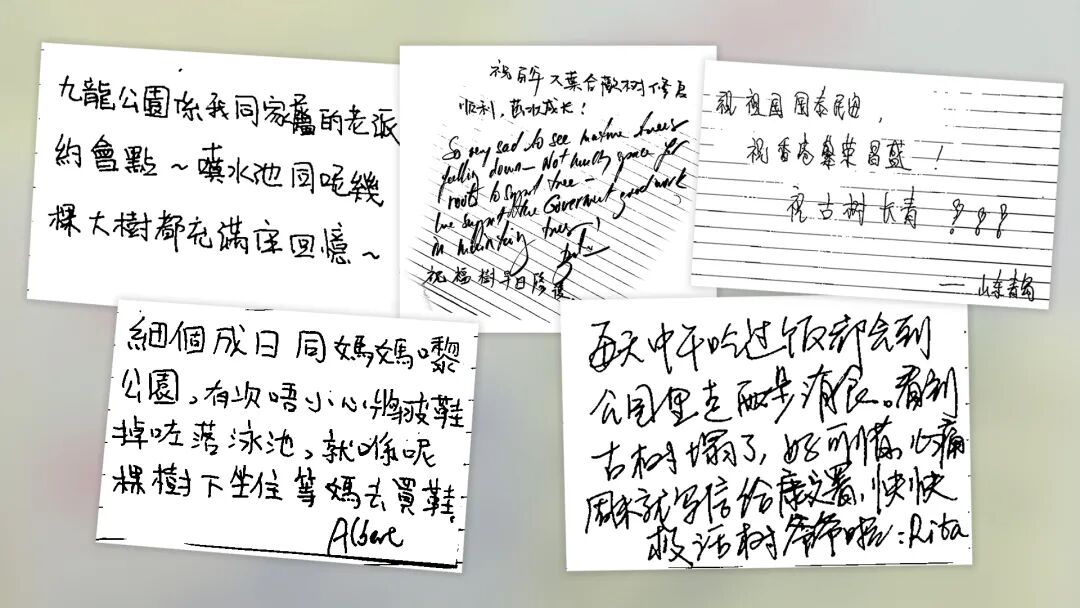 九龍公園係我同家的老派
約會點～噴水池同呢幾
棵大樹都充滿住回憶～
祝百年大葉合歡树修复
顺利，茁壮成长！
So very sad to see mature trees
falling down - Not much space for
roots to support tree -
We support the Goverment good work
in trees
祝福樹早日修復
祝祖国国泰民安，
祝香港繁荣昌盛！
祝古树长青！！！
——山东青岛
細個成日同媽媽嚟
公園，有次唔小心將皮鞋
掉咗落泳池，就喺呢
棵樹下坐住等媽去買鞋
Albert
每天中午吃过饭都会到
公园里走两步消食。看到
古树塌了，好可惜，心痛
周末就写信给康文署，快快
救活树爷爷啦：Rita